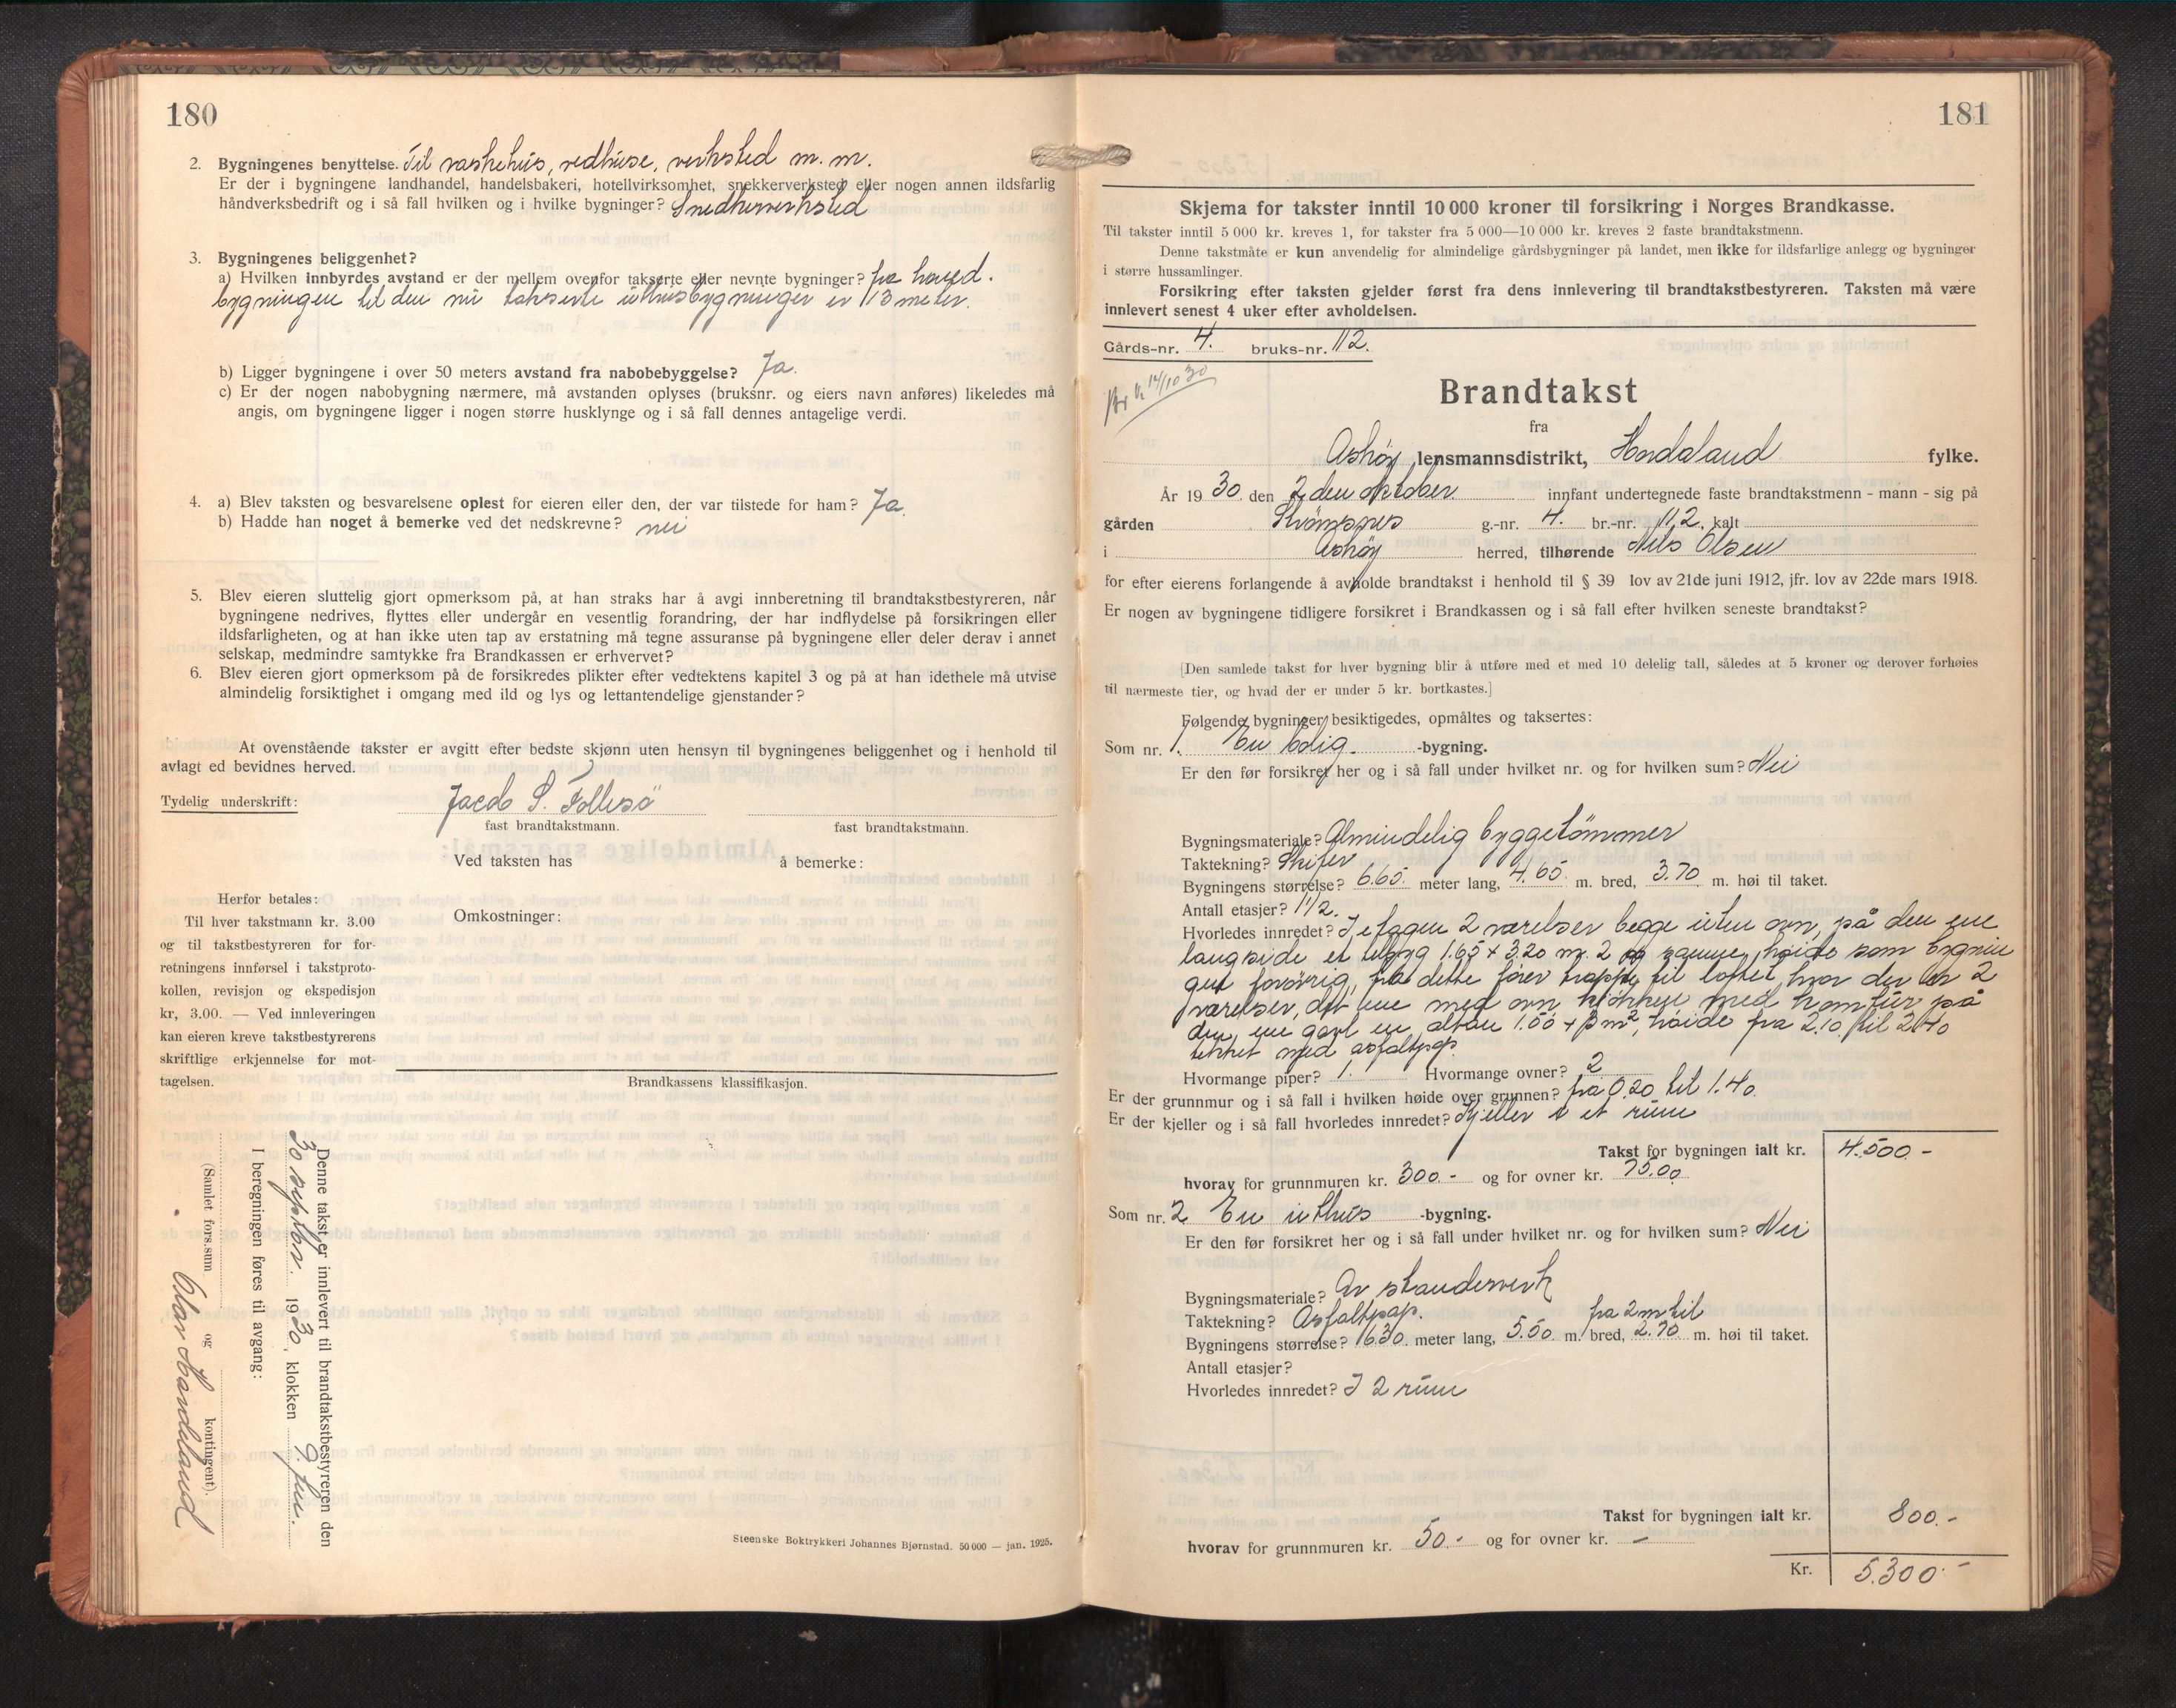 180
2. Bygningenes benyttelse. Til vaskehus, vedhuse, verksted m. m.
Er der i bygningene landhandel, handelsbakeri, hotellvirksomhet, snekkerverksted eller nogen annen ildsfarlig
håndverksbedrift og i så fall hvilken og i hvilke bygninger? Snedkerverksted
3. Bygningenes beliggenhet?
a) Hvilken innbyrdes avstand er der mellem ovenfor takserte eller nevnte bygninger? fra hoved.
bygningen til den nu takserte uthusbygninger er 13 meter.
b) Ligger bygningene i over 50 meters avstand fra nabobebyggelse? Ja.
c) Er der nogen nabobygning nærmere, må avstanden oplyses (bruksnr. og eiers navn anføres) likeledes må
angis, om bygningene ligger i nogen større husklynge og i så fall dennes antagelige verdi.
4. a) Blev taksten og besvarelsene oplest for eieren eller den, der var tilstede for ham? Ja.
b) Hadde han noget å bemerke ved det nedskrevne? nei
5. Blev eieren sluttelig gjort opmerksom på, at han straks har å avgi innberetning til brandtakstbestyreren, når
bygningene nedrives, flyttes eller undergår en vesentlig forandring, der har indflydelse på forsikringen eller
ildsfarligheten, og at han ikke uten tap av erstatning må tegne assuranse på bygningene eller deler derav i annet
selskap, medmindre samtykke fra Brandkassen er erhvervet?
6. Blev eieren gjort opmerksom på de forsikredes plikter efter vedtektens kapitel 3 og på at han idethele må utvise
almindelig forsiktighet i omgang med ild og lys og lettantendelige gjenstander?
At ovenstående takster er avgitt efter bedste skjønn uten hensyn til bygningenes beliggenhet og i henhold til
avlagt ed bevidnes herved.
Tydelig underskrift: Jacob S. Follesö
fast brandtakstmann. fast brandtakstmann.
Ved taksten has å bemerke:
Herfor betales:
Til hver takstmann kr. 3.00
og til takstbestyreren for for-
retningens innførsel i takstproto-
kollen, revisjon og ekspedisjon
kr, 3.00. — Ved innleveringen
kan eieren kreve takstbestyrerens
skriftlige erkjennelse for mot-
tagelsen.
Omkostninger:
Brandkassens klassifikasjon.
Denne takst er innlevert til brandtakstbestyreren den
30 septbr. 1930, klokken 9. fm.
I beregningen føres til avgang:
(Samlet fors.sum og kontingent).
Olav Handeland
Steenske Boktrykkeri Johannes Bjørnstad. 50 000 — jan. 1925.
181
Skjema for takster inntil 10 000 kroner til forsikring i Norges Brandkasse.
Til takster inntil 5 000 kr. kreves 1, for takster fra 5 000—10 000 kr. kreves 2 faste brandtakstmenn.
Denne takstmåte er kun anvendelig for almindelige gårdsbygninger på landet, men ikke for ildsfarlige anlegg og bygninger
i større hussamlinger.
Forsikring efter taksten gjelder først fra dens innlevering til brandtakstbestyreren. Taksten må være
innlevert senest 4 uker efter avholdelsen.
Gårds-nr. 4. bruks-nr. 112.
14/10 30
Brandtakst
fra
Askøy lensmannsdistrikt, Hordaland fylke.
År 1930 den 2den oktober innfant undertegnede faste brandtakstmenn - mann - sig på
gården Strömsnes g.-nr. 4. br.-nr. 112. kalt
i Askøy herred, tilhørende Nils Olsen
for efter eierens forlangende å avholde brandtakst i henhold til § 39 lov av 21de juni 1912, jfr. lov av 22de mars 1918.
Er nogen av bygningene tidligere forsikret i Brandkassen og i så fall efter hvilken seneste brandtakst?
[Den samlede takst for hver bygning blir å utføre med et med 10 delelig tall, således at 5 kroner og derover forhøies
til nærmeste tier, og hvad der er under 5 kr. bortkastes.]
Følgende bygninger besiktigedes, opmåltes og taksertes:
Som nr. 1. En bolig. -bygning.
Er den før forsikret her og i så fall under hvilket nr. og for hvilken sum? Nei
Bygningsmateriale? Almindelig byggetömmer
Taktekning? Skifer
Bygningens størrelse? 6.65. meter lang, 4.65. m. bred, 3.70 m. høi til taket.
Antall etasjer? 1 1/2.
Hvorledes innredet? I etagen 2 værelser begge uten ovn, på den ene
langside et tilbyg 1.65 + 3.20 m. 2 og samme høide som bygnin
gen forövrig, fra dette förer trappe til loftet hvor der er 2
værelser, det ene med ovn kjökken med komfur på
den ene gavl en altan 1.50 + 3 m², höide fra 2.10 til 2.40
tekket med asfaltpap.
Hvormange piper? 1. Hvormange ovner? 2
Er der grunnmur og i så fall i hvilken høide over grunnen? fra 0.20 til 1.40.
Er der kjeller og i så fall hvorledes innredet? Kjeller i et rum
Takst for bygningen ialt kr. 4.500.-
hvorav for grunnmuren kr. 300.- og for ovner kr. 75.00
Som nr. 2 En uthus -bygning.
Er den før forsikret her og i så fall under hvilket nr. og for hvilken sum? Nei
Bygningsmateriale? Av standerverk
Taktekning? Asfaltpap. fra 2 m til
Bygningens størrelse? 6.30. meter lang, 5.50. m. bred, 2.70 m. høi til taket.
Antall etasjer?
Hvorledes innredet? I 2 rum
Takst for bygningen ialt kr. 800.-
hvorav for grunnmuren kr. 50.- og for ovner kr. -
Kr. 5.300.-